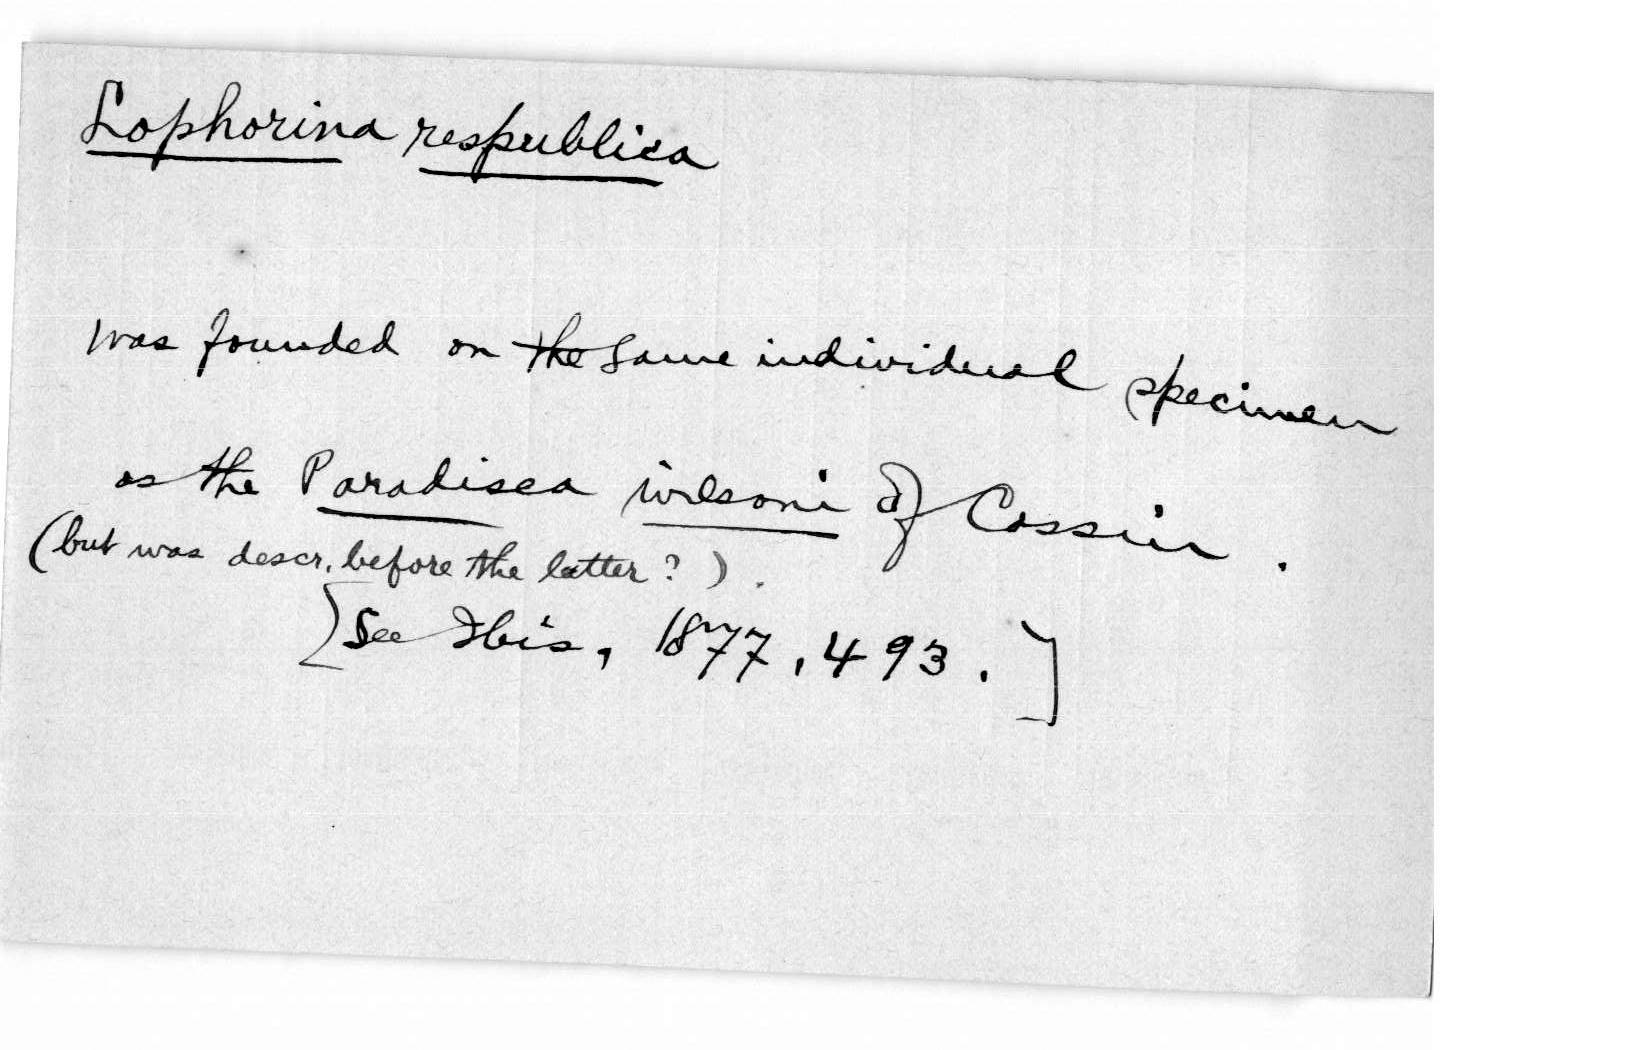 Lophorina respublica
was founded on the same individual specimen
as the Paradisea wilsoni of Cassin.
(but was descr. before the latter?).
[See Ibis, 1877, 493.]